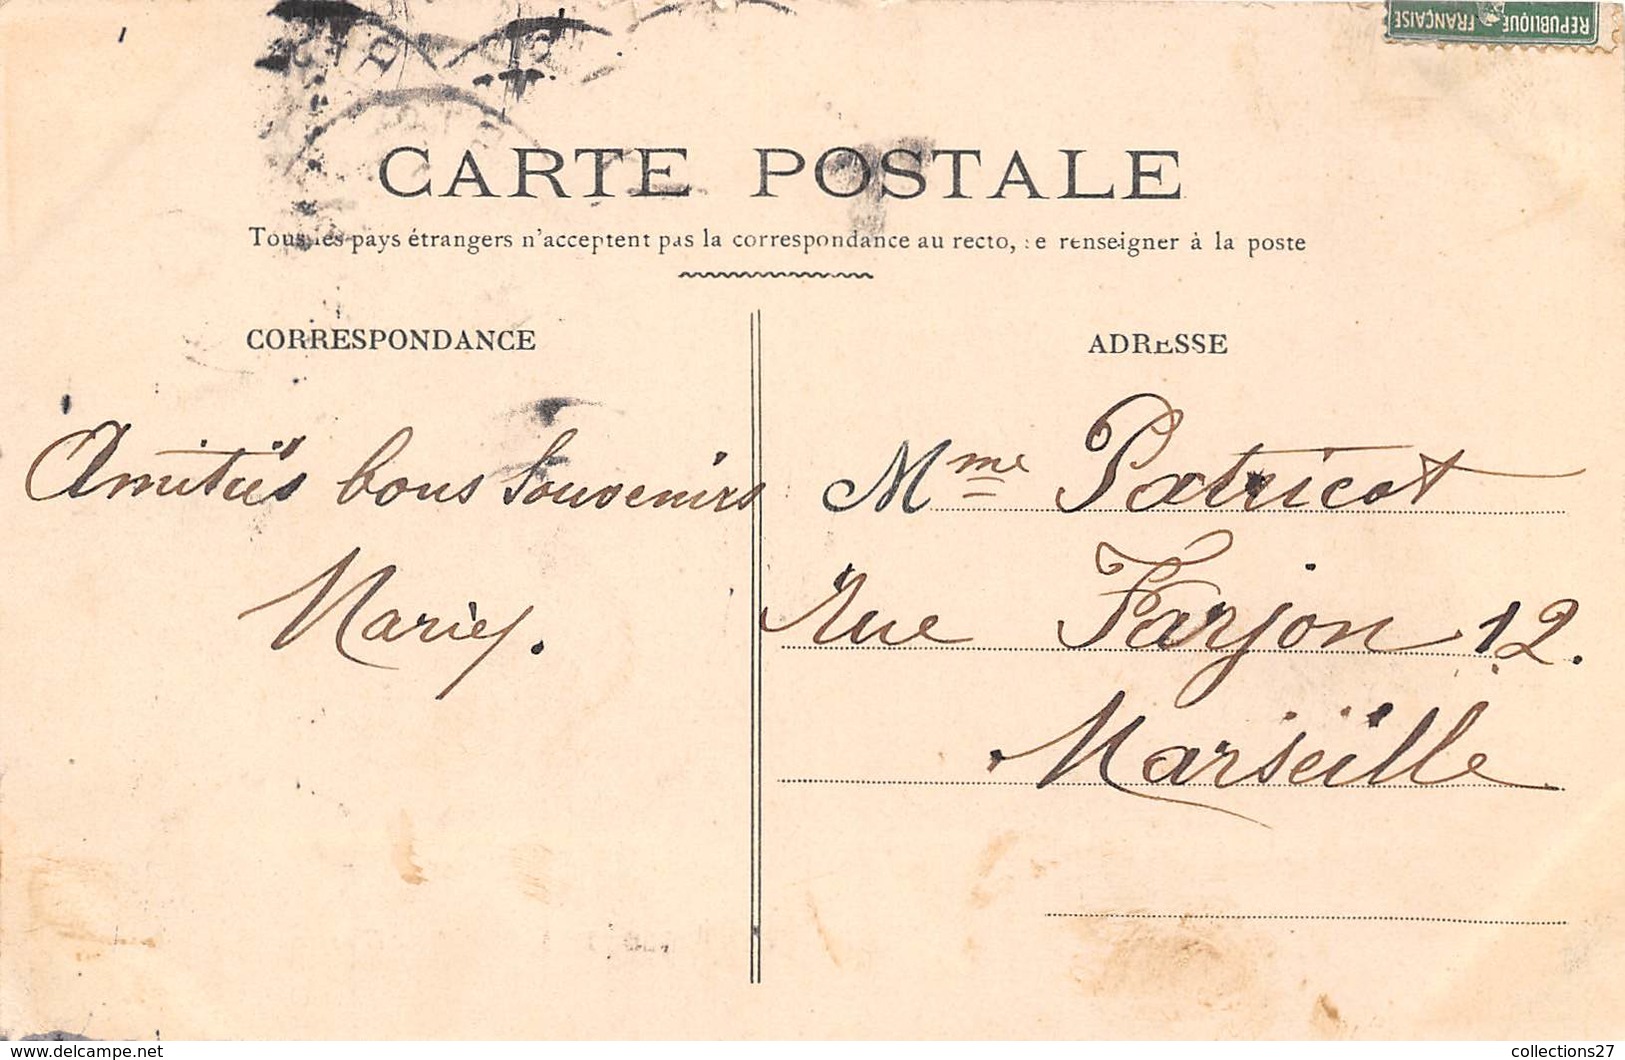 REPUBLIQUE FRANÇAISE
CARTE POSTALE
Tous les pays étrangers n'acceptent pas la correspondance au recto, se renseigner à la poste
CORRESPONDANCE
Amitiés bons Souvenirs
ADRESSE
Mme Patricot
Rue Farjon 12.
Marseille
www.delcampe.net
collections27